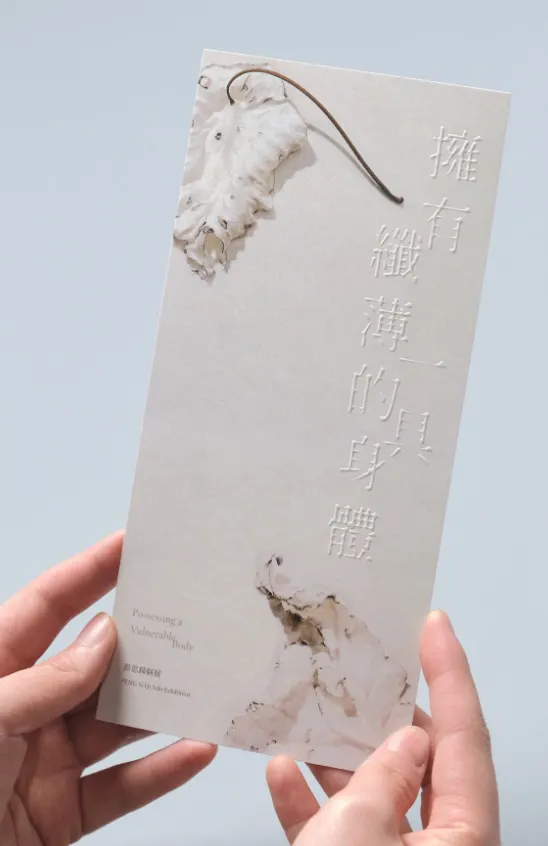 擁有一具
纖薄的身體
Possessing a
Vulnerable
Body
個展
PENG Si-Qi Solo Exhibition